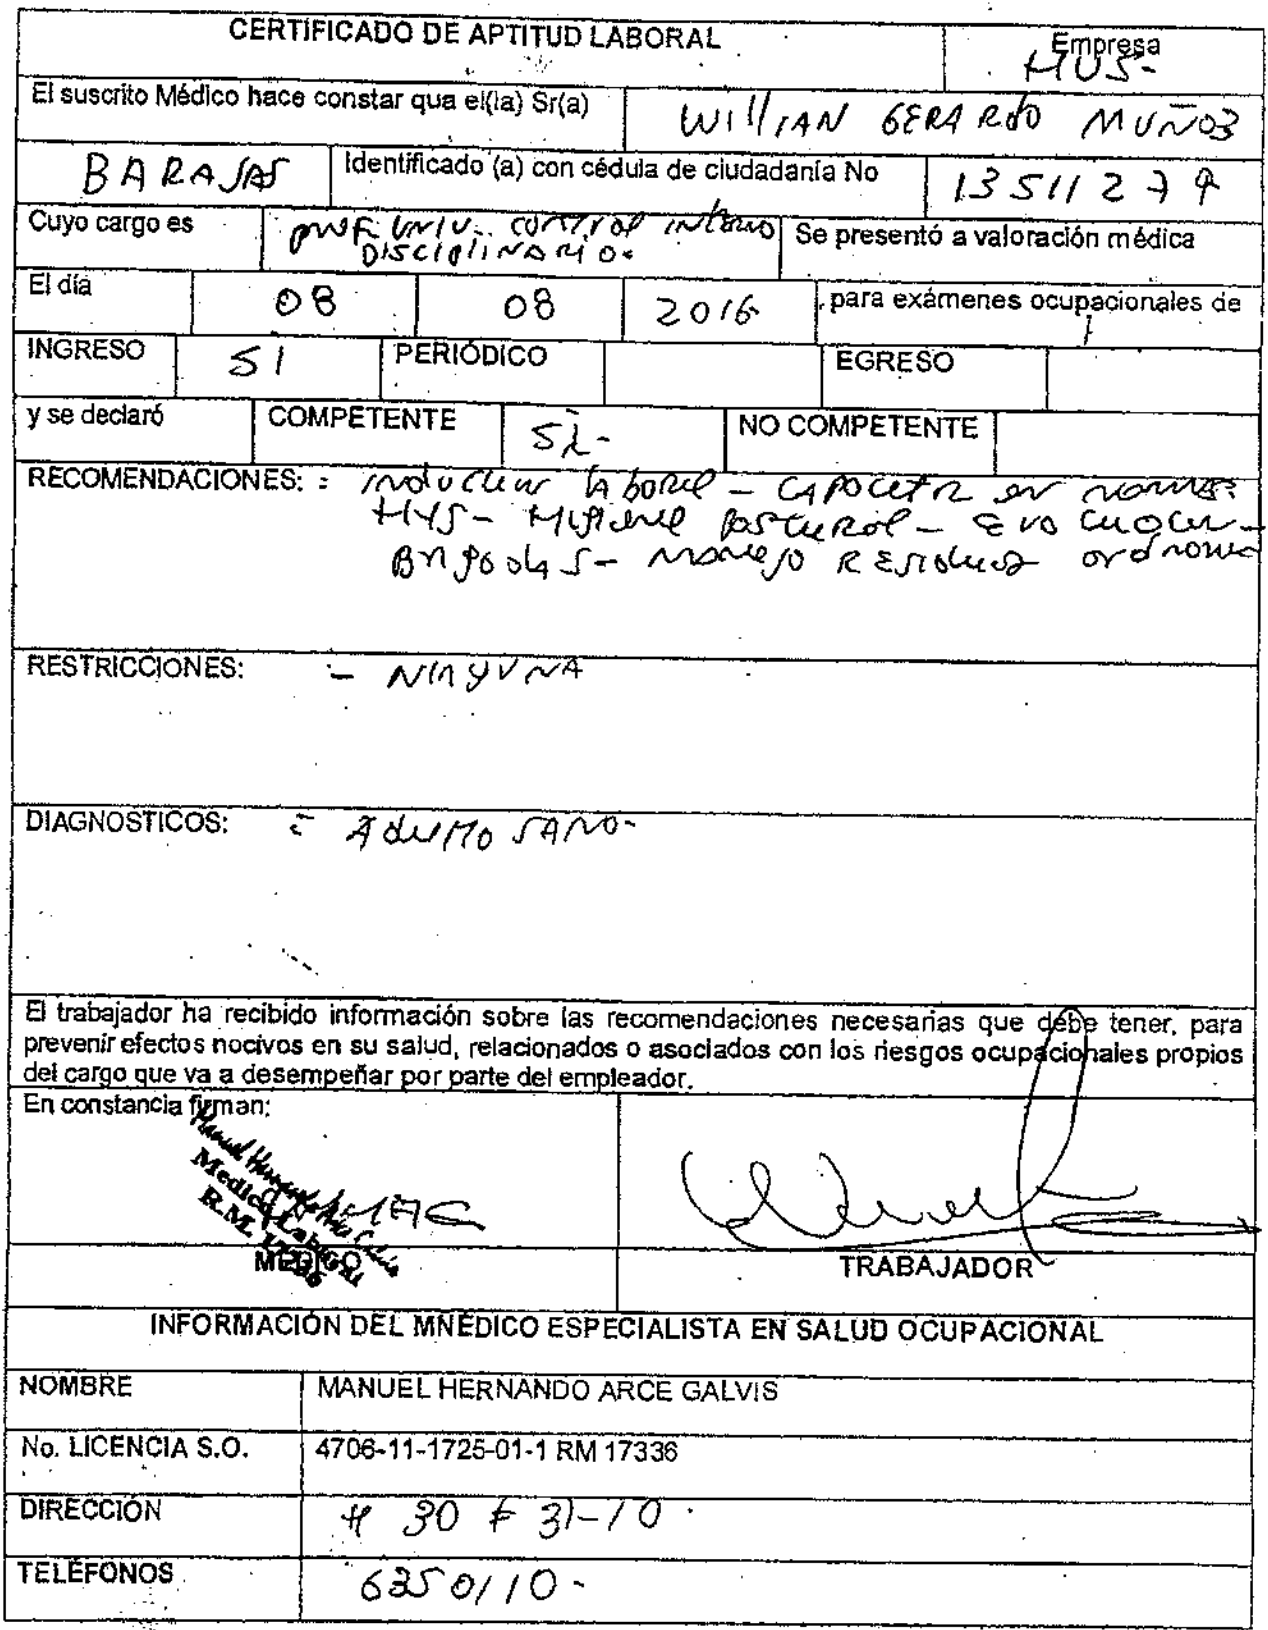 CERTIFICADO DE APTITUD LABORAL
Empresa
HUS-
El suscrito Médico hace constar qua el(la) Sr(a)
WillIAN GERARDO MUÑOZ
BARAJAS
Identificado (a) con cédula de ciudadanía No
13511279
Cuyo cargo es
prof. UNIV. control interno
DISCIPLINARIO.
Se presentó a valoración médica
El día
08
08
2016
para exámenes ocupacionales de
INGRESO
SI
PERIÓDICO
EGRESO
y se declaró
COMPETENTE
Si-
NO COMPETENTE
RECOMENDACIONES: - induccion laboral - capacitar en normas
HYS - Higiene postural - Evacuacion -
Brigadas - manejo Residuos
RESTRICCIONES: - NINGUNA
DIAGNOSTICOS: - ADULTO SANO-
El trabajador ha recibido información sobre las recomendaciones necesarias que debe tener, para
prevenir efectos nocivos en su salud, relacionados o asociados con los riesgos ocupacionales propios
del cargo que va a desempeñar por parte del empleador.
En constancia firman:
Manuel Hernando Arce Galvis
Medico Laboral
R.M.
MEDICO
TRABAJADOR
INFORMACIÓN DEL MNÉDICO ESPECIALISTA EN SALUD OCUPACIONAL
NOMBRE
MANUEL HERNANDO ARCE GALVIS
No. LICENCIA S.O.
4706-11-1725-01-1 RM 17336
DIRECCIÓN
# 30 # 31-10
TELÉFONOS
6350110-